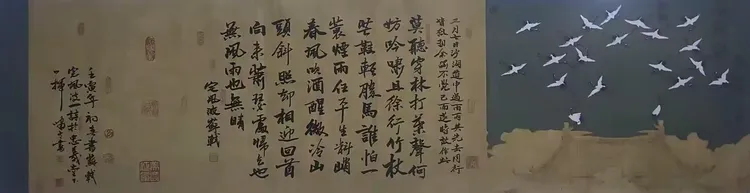 三月七日沙湖道中遇雨雨具先去同行
皆狼狽余獨不覺已而遂晴故作此
莫聽穿林打葉聲何
妨吟嘯且徐行竹杖
芒鞋輕勝馬誰怕一
蓑煙雨任平生料峭
春風吹酒醒微冷山
頭斜照却相迎回首
向來蕭瑟處歸去也
無風雨也無晴
定風波蘇軾
壬寅年初冬書蘇軾
定風波一詞於忠義堂
一揮書